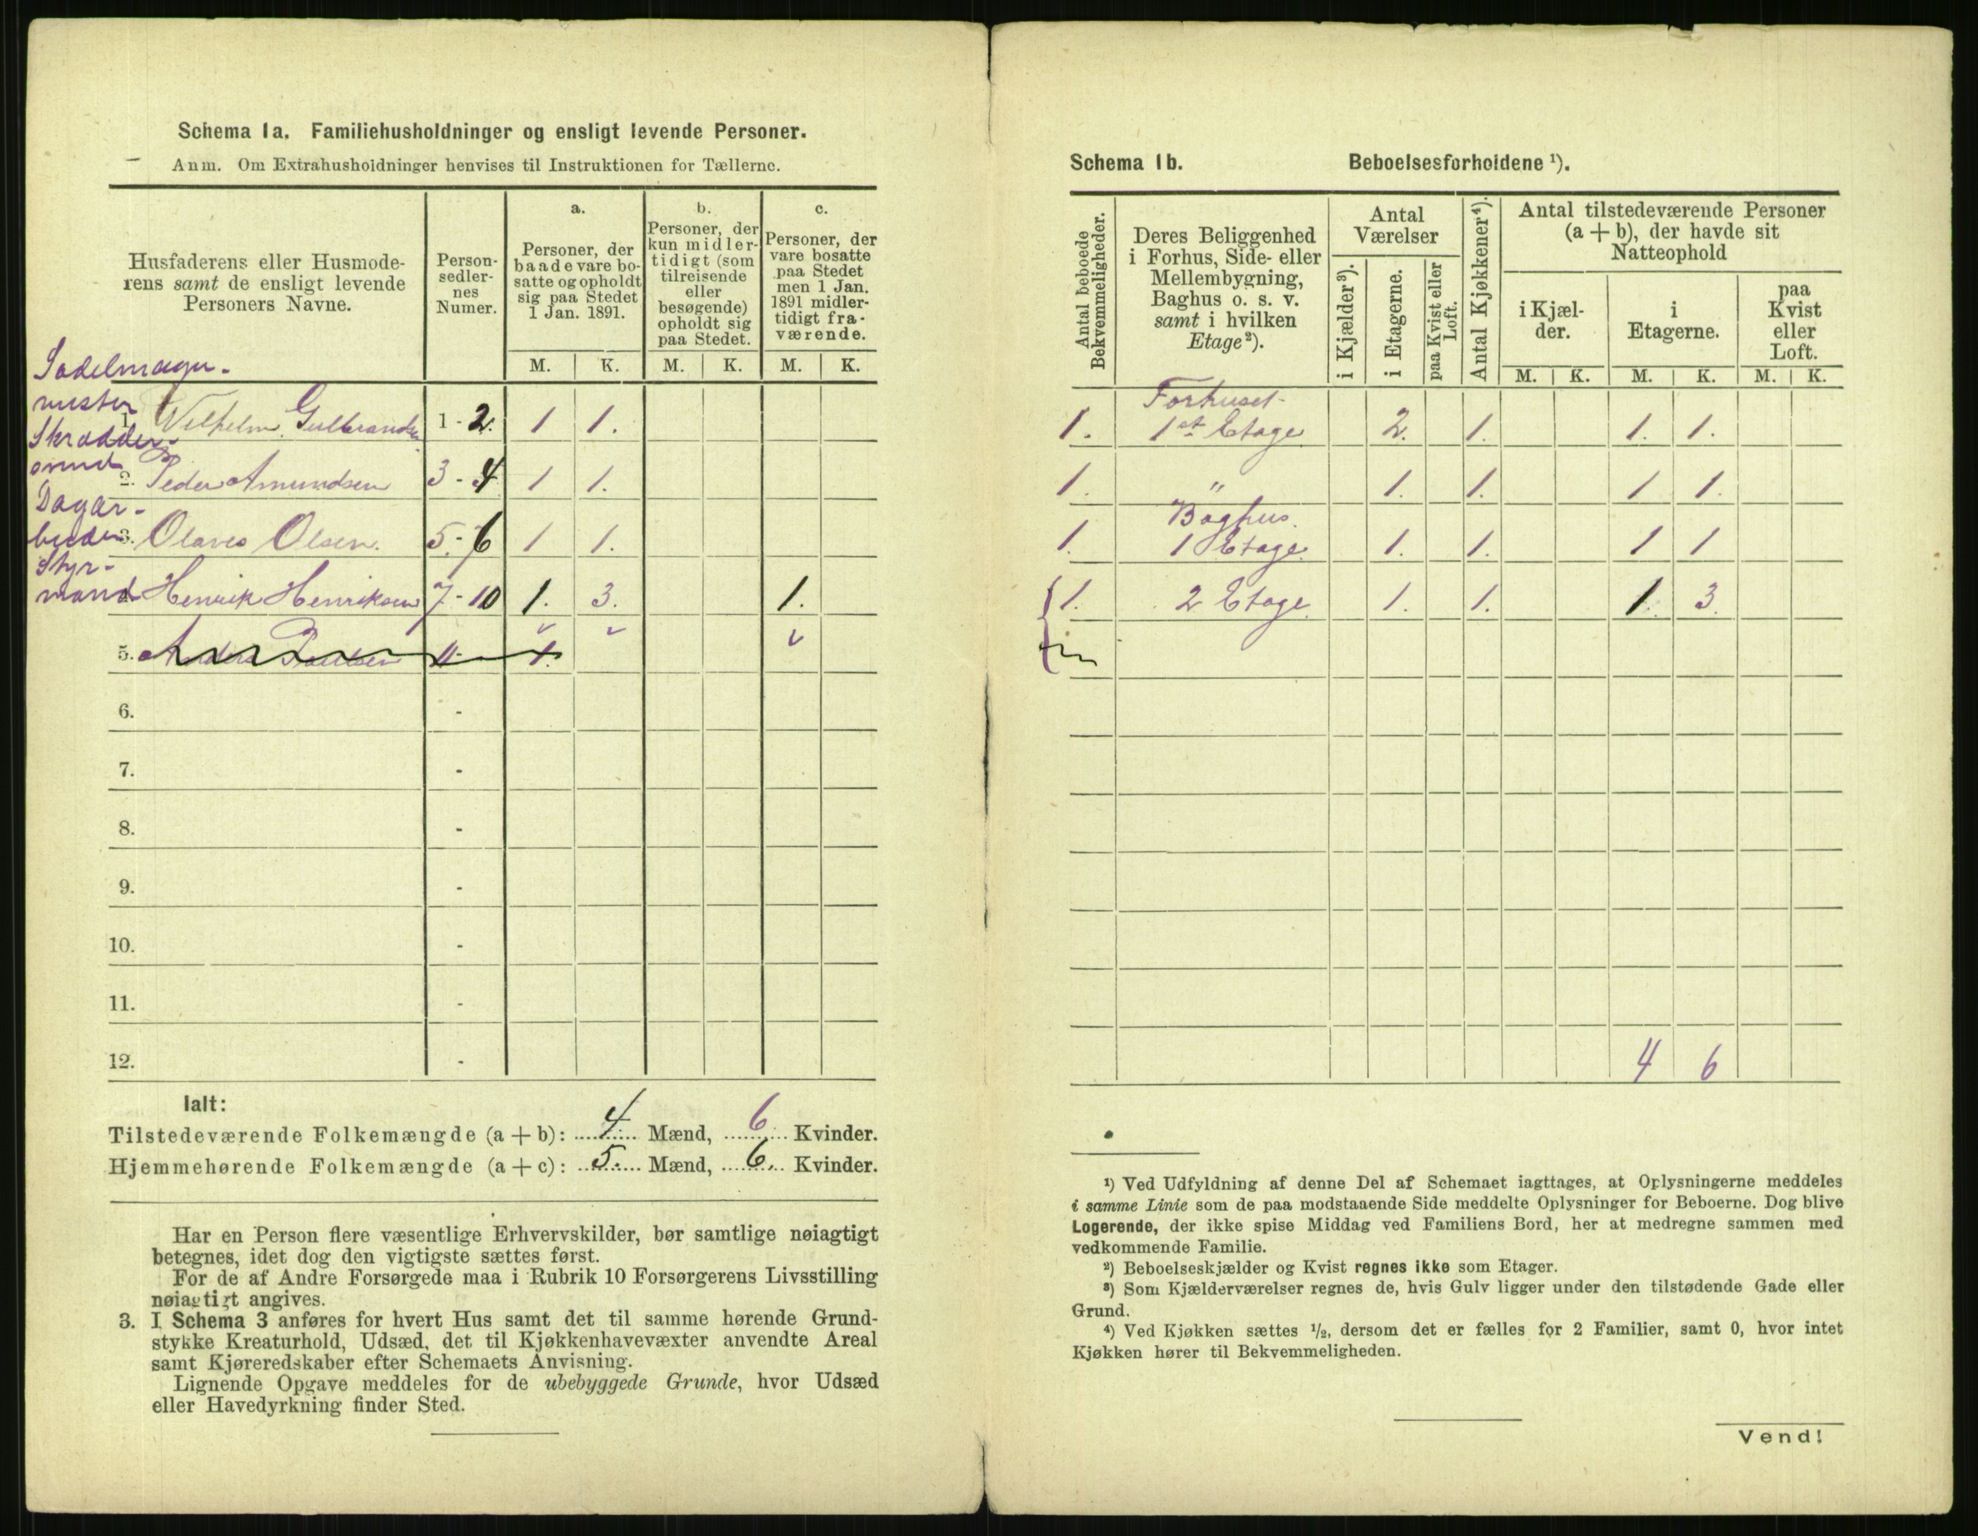 Schema 1a. Familiehusholdninger og ensligt levende Personer.
Anm. Om Extrahusholdninger henvises til Instruktionen for Tællerne.
Husfaderens eller Husmode-
rens samt de ensligt levende
Personers Navne.
Person-
sedler-
nes
Numer.
a.
Personer, der
baade vare bo-
satte og opholdt
sig paa Stedet
1 Jan. 1891.
b.
Personer, der
kun midler-
tidigt (som
tilreisende
eller
besøgende)
opholdt sig
paa Stedet.
c.
Personer, der
vare bosatte
paa Stedet
men 1 Jan.
1891 midler-
tidigt fra-
værende.
M. K. M. K. M. K.
Sadelmager-
mester
1. Vilhelm Gulbrandsen 1 - 2. 1 1.
Skrædder-
svend
2. Peder Amundsen 3 - 4 1 1.
Dagar-
beider
3. Olaves Olsen. 5 - 6 1 1.
Styr-
mand Henrik Henriksen 7 - 10 1. 3. 1.
5. 11 - 1.
6. -
7. -
8. -
9. -
10. -
11. -
12. -
Ialt:
Tilstedeværende Folkemængde (a + b): 4 Mænd, 6 Kvinder.
Hjemmehørende Folkemængde (a + c): 5. Mænd, 6. Kvinder.
Har en Person flere væsentlige Erhvervskilder, bør samtlige nøiagtigt
betegnes, idet dog den vigtigste sættes først.
For de af Andre Forsørgede maa i Rubrik 10 Forsørgerens Livsstilling
nøiagtigt angives.
3. I Schema 3 anføres for hvert Hus samt det til samme hørende Grund-
stykke Kreaturhold, Udsæd, det til Kjøkkenhavevæxter anvendte Areal
samt Kjøreredskaber efter Schemaets Anvisning.
Lignende Opgave meddeles for de ubebyggede Grunde, hvor Udsæd
eller Havedyrkning finder Sted.
Schema 1b. Beboelsesforholdene ¹).
Antal beboede
Bekvemmeligheder.
Deres Beliggenhed
i Forhus, Side- eller
Mellembygning,
Baghus o. s. v.
samt i hvilken
Etage²).
Antal
Værelser
i Kjælder³).
i Etagerne.
paa Kvist eller
Loft.
Antal Kjøkkener⁴).
Antal tilstedeværende Personer
(a + b), der havde sit
Natteophold
i Kjæl-
der.
i
Etagerne.
paa
Kvist
eller
Loft.
M. K. M. K. M. K.
Forhuset
1. 1st Etage 2. 1. 1. 1.
1. " 1. 1. 1 1.
Baghus.
1. 1 Etage 1. 1. 1 1
1. 2 Etage. 1. 1. 1. 3.
4 6
¹) Ved Udfyldning af denne Del af Schemaet iagttages, at Oplysningerne meddeles
i samme Linie som de paa modstaaende Side meddelte Oplysninger for Beboerne. Dog blive
Logerende, der ikke spise Middag ved Familiens Bord, her at medregne sammen med
vedkommende Familie.
²) Beboelseskjælder og Kvist regnes ikke som Etager.
³) Som Kjælderværelser regnes de, hvis Gulv ligger under den tilstødende Gade eller
Grund.
⁴) Ved Kjøkken sættes ½, dersom det er fælles for 2 Familier, samt 0, hvor intet
Kjøkken hører til Bekvemmeligheden.
Vend!